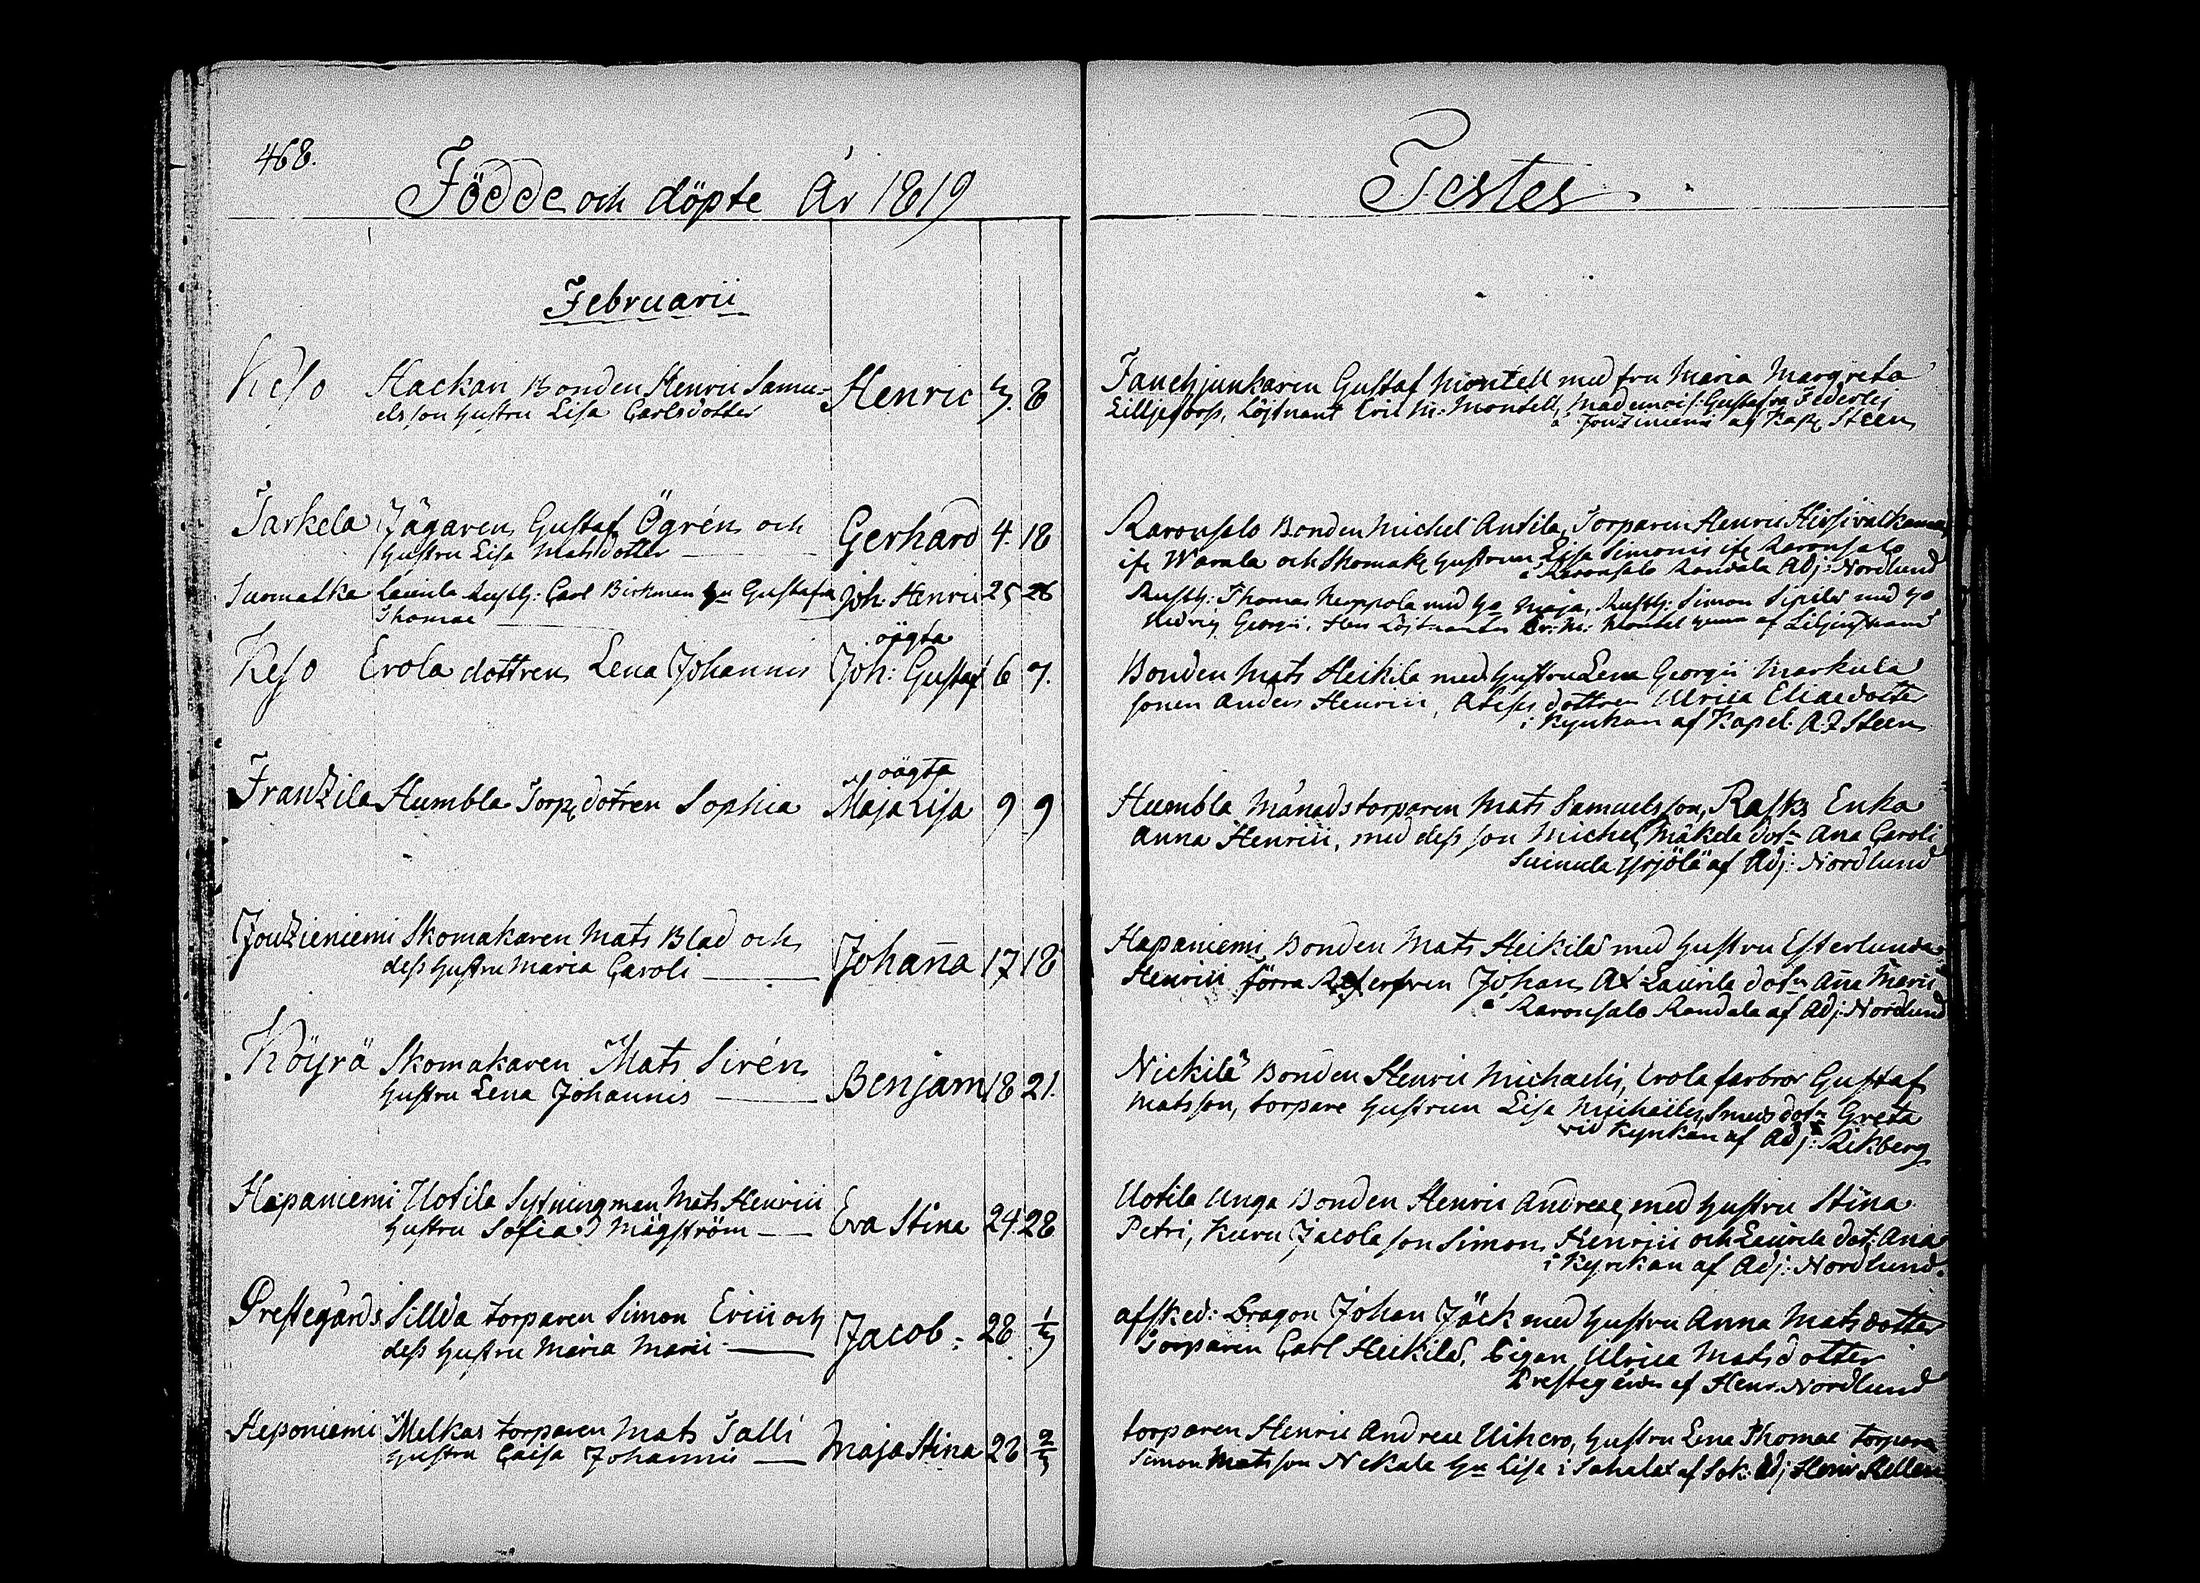 468.
Födde och döpte År 1819
Februarii
Keso Hackari Bonden Henric Samu-
elsson hustru Lisa Carlsdotter Henric 3. 8
Sarkela Jägaren Gustaf Ögrén och
hustru Lisa Matsdotter Gerhard 4. 18
Suomatka Laurila Rusth: Carl Birkman hu Gustafva
Thomae Joh. Henric 25 26
Keso Erola dottren Lena Johannis oägta
Joh: Gustaf 6 7.
Franzila Humbla Torp dotren Sophia oägta
Maja Lisa 9 9
Jouzieniemi Skomakaren Mats Blad och
dess hustru Maria Caroli Johanna 17 18
Köyrä Skomakaren Mats Sirén
hustru Lena Johannis Benjam 18 21.
Hapaniemi Uotila Sytningman Mats Henrici
hustru Sofia Mägström Eva Stina 24. 28
Prestegårds Sillda torparen Simon Erici och
dess hustru Maria Marii Jacob 28 1/3
Heponiemi Melkas torparen Mats Salli
hustru Caisa Johannis Maja Stina 28 2/3
Testes
Fanejunkaren Gustaf Montell med fru Maria Margreta
Lilljefors, Löjtnant Eric M: Montell, Gustafva Federley
Jouziniemi af Kap Steen
Raronsalo Bonden Michel Antila, Torparen Henric
Warala och Skomak hustrun Lisa Simonis Raronsalo
Raronsalo Randala Adj: Nordlund
Rusth: Thomas Keoppola med hu Maja, Rusth: Simon Sipilä med hu
Hedvig Georgii, Herr Löjtnanten Er: M: Montel af
Bonden Mats Heikilä med hustru Lena Georgii Markula
sonen Anders Henrici, dottren Ulrica Eliaedotter
i kyrkan af Kapel: A: F Steen
Humbla Månadstorparen Mats Samuelsson, Rasks Enka
Anna Henrici, med dess son Michel, Mäkela dotr Ana Caroli
Suinula Yrjölä af Adj: Nordlund
Hapaniemi Bonden Mats Heikilä med hustru
Henrici förra Johan Laurila dotr Aña
å Raronsalo Randala af Adj: Nordlund
Nickilä Bonden Henric Michaelis, Erola farbror Gustaf
Matsson, torpare hustrun Lisa Michaelis, Smeds dotr Greta
vid kyrkan af Adj: Rikberg
Uotila Unga Bonden Henric Andreae, med hustru Stina
Petri, Kuru Jacola son Simon Henrici och Laurila dot: Ana
i Kyrkan af Adj: Nordlund.
afsked: Dragon Johan Jäck med hustru Anna Matsdotter
Torparen Carl Heikilä, Pigan Ulrica Matsdotter
Prestegården af Henr. Nordlund
torparen Henric Andreae Uihero, hustru Lena Thomae torparen
Simon Matsson Nekala hu Lisa i Sahalax af Sok: Adj Henr Hellen